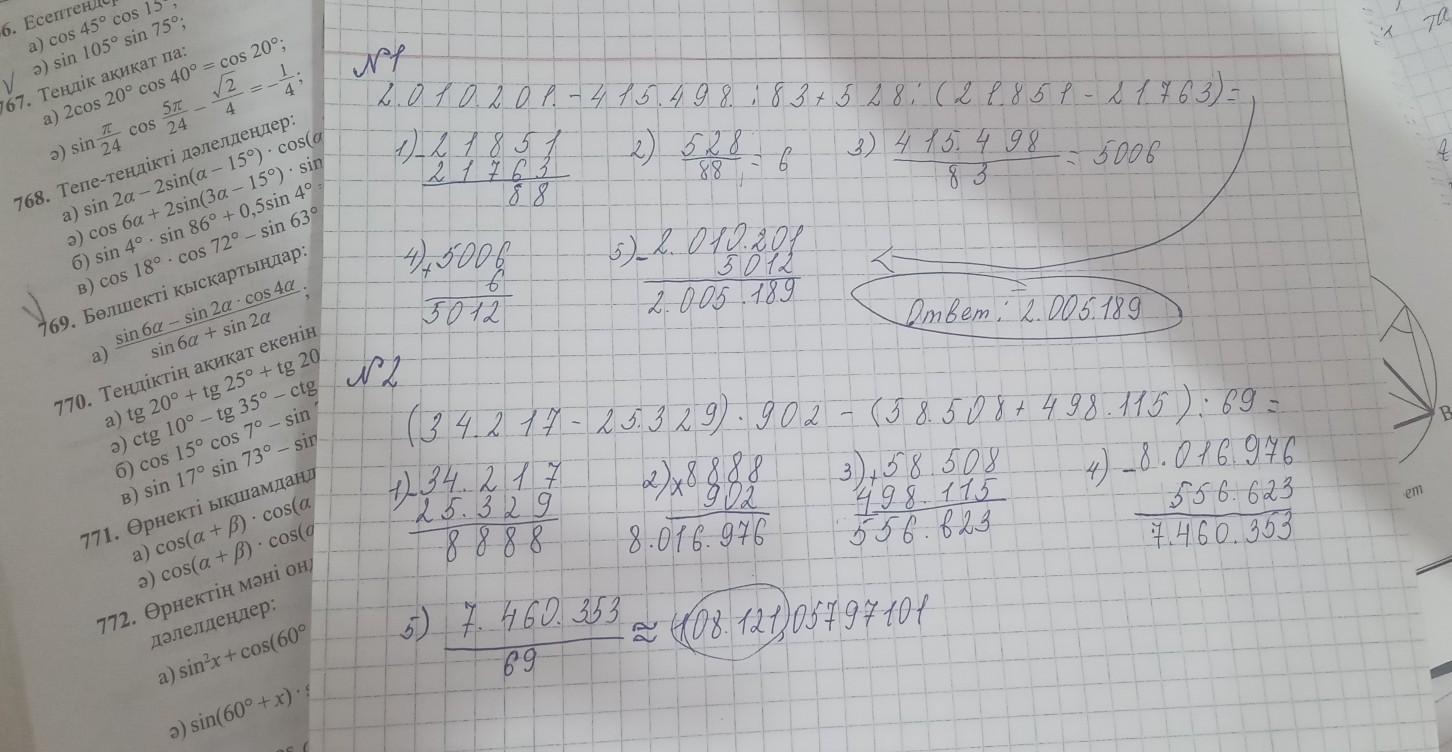 6. Есептеңдер
а) cos 45° cos 15°;
ә) sin 105° sin 75°;
767. Теңдік ақиқат па:
а) 2cos 20° cos 40° = cos 20°;
ә) sin π/24 cos 5π/24 − √2/4 = −1/4;
768. Тепе-теңдікті дәлелдеңдер:
а) sin 2α − 2sin(α − 15°) · cos(α
ә) cos 6α + 2sin(3α − 15°) · sin
б) sin 4° · sin 86° + 0,5sin 4°
в) cos 18° · cos 72° − sin 63°
769. Бөлшекті қысқартыңдар:
а) sin 6α − sin 2α · cos 4α / sin 6α + sin 2α ;
770. Теңдіктің ақиқат екенін
а) tg 20° + tg 25° + tg 20
ә) ctg 10° − tg 35° − ctg
б) cos 15° cos 7° − sin
в) sin 17° sin 73° − sin
771. Өрнекті ықшамдаңд
а) cos(α + β) · cos(α
ә) cos(α + β) · cos(α
772. Өрнектің мәні
дәлелдеңдер:
а) sin²x + cos(60°
ә) sin(60° + x) ·
№1
2.010.201. − 415.498. : 83 + 528 : (21.851 − 21.763) =
1) − 21851 2) 528/88 = 6 3) 415.498/83 = 5006
21763
88
4) + 5006 5) − 2.010.201
6 5012
5012 2.005.189
Ответ: 2.005.189
№2
(34.217 − 25.329) · 902 − (58.508 + 498.115) : 69 =
1) − 34.217 2) × 8888 3) + 58.508 4) − 8.016.976
25.329 902 498.115 556.623
8888 8.016.976 556.623 7.460.353
5) 7.460.353/69 ≈ 108.121,05797101
В
ет